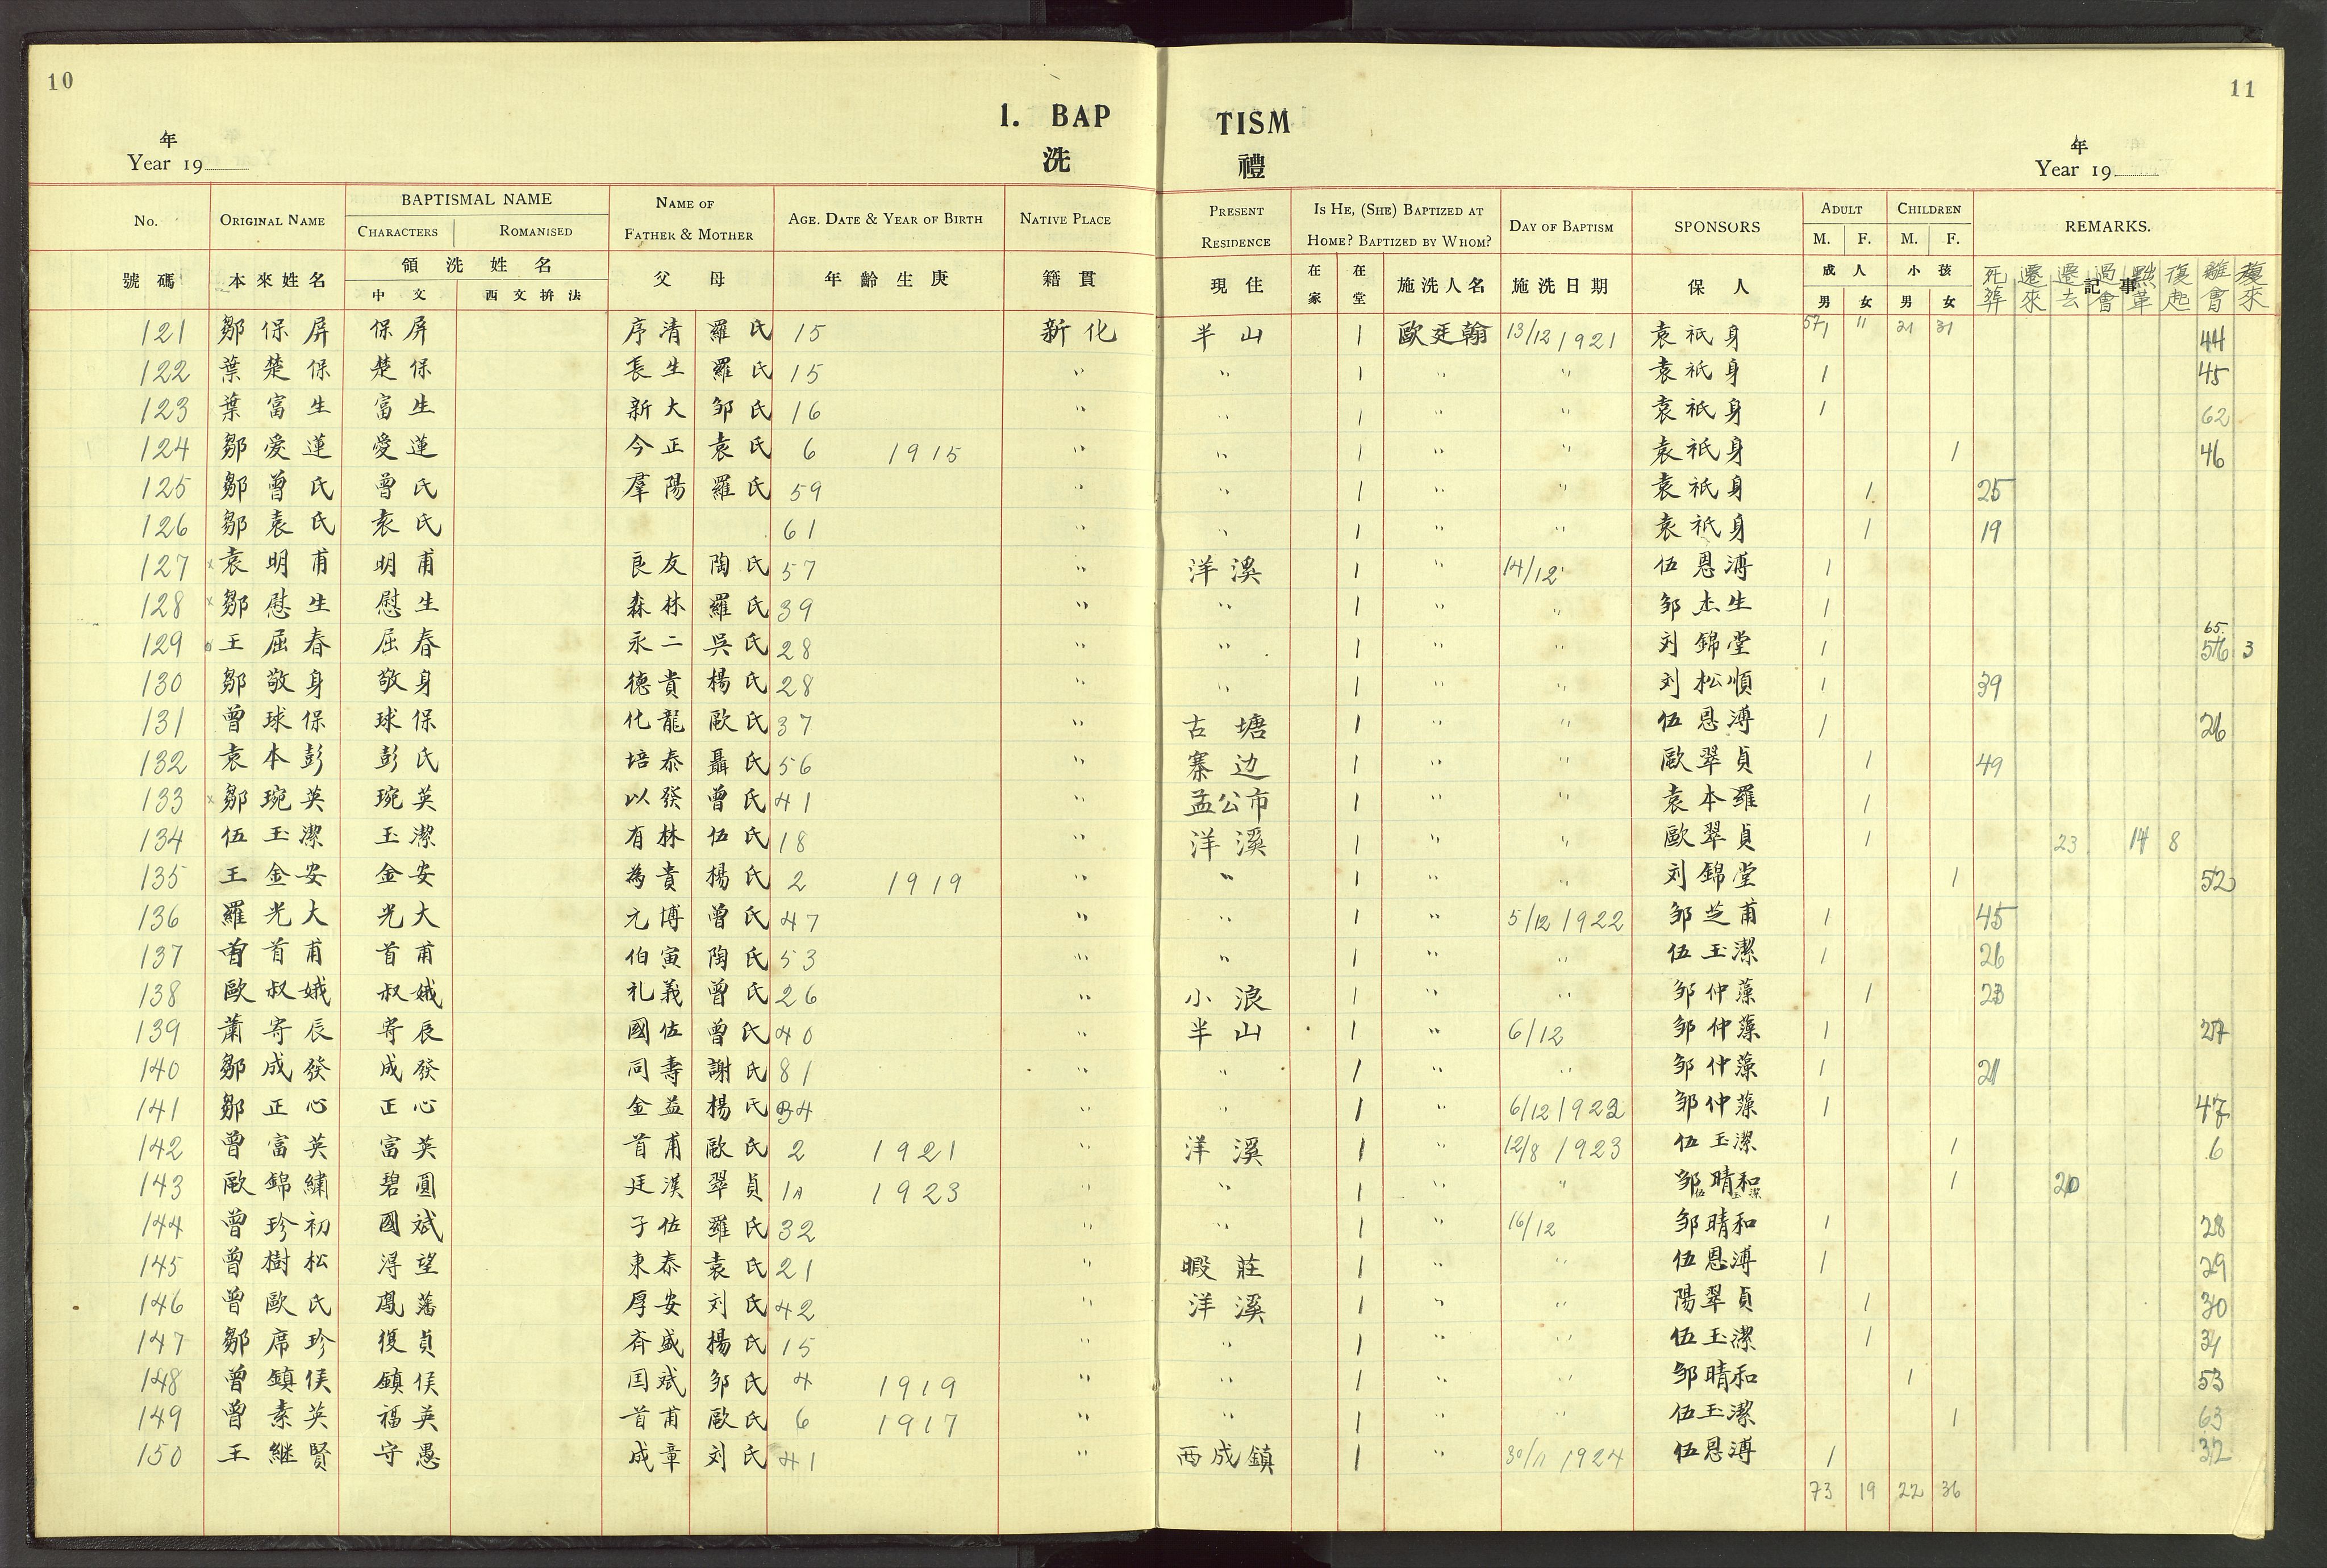 10
11
1. BAP TISM
洗 禮
年
Year 19
年
Year 19
No. ORIGINAL NAME BAPTISMAL NAME CHARACTERS ROMANISED NAME OF FATHER & MOTHER AGE. DATE & YEAR OF BIRTH NATIVE PLACE PRESENT RESIDENCE IS HE, (SHE) BAPTIZED AT HOME? BAPTIZED BY WHOM? DAY OF BAPTISM SPONSORS ADULT M. F. CHILDREN M. F. REMARKS.
號碼 本來姓名 領洗姓名 中文 西文拚法 父母 年齡生庚 籍貫 現住 在家 在堂 施洗人名 施洗日期 保人 成人 男 女 小孩 男 女 記事 死葬 遷來 遷去 過會 黜革 復起 離會 復來
121 鄒保屏 保屏 序清 羅氏 15 新化 半山 1 歐廷翰 13/12 1921 袁祇身 57 1 11 21 31 44
122 葉楚保 楚保 長生 羅氏 15 " " 1 " " 袁祇身 1 45
123 葉富生 富生 新大 邹氏 16 " " 1 " " 袁祇身 1 62
124 鄒爱蓮 愛蓮 今正 袁氏 6 1915 " " 1 " " 袁祇身 1 46
125 鄒曾氏 曾氏 羣陽 羅氏 59 " " 1 " " 袁祇身 1 25
126 鄒袁氏 袁氏 61 " " 1 " " 袁祇身 1 19
127 x 袁明甫 明甫 良友 陶氏 57 " 洋溪 1 " 14/12 伍恩溥 1
128 x 鄒慰生 慰生 森林 羅氏 39 " " 1 " " 邹杰生 1
129 王屈春 屈春 永二 吳氏 28 " " 1 " " 刘錦堂 1 65. 56 3
130 鄒敬身 敬身 德貴 楊氏 28 " " 1 " " 刘松順 1 39
131 曾球保 球保 化龍 歐氏 37 " 古塘 1 " " 伍恩溥 1 26
132 袁本彭 彭氏 培泰 聶氏 56 " 寨边 1 " " 歐翠貞 1 49
133 x 鄒琬英 琬英 以發 曾氏 41 " 孟公市 1 " " 袁本羅 1
134 伍玉潔 玉潔 有林 伍氏 18 " 洋溪 1 " " 歐翠貞 1 23 14 8
135 王金安 金安 為貴 楊氏 2 1919 " " 1 " " 刘錦堂 1 52
136 羅光大 光大 元博 曾氏 47 " " 1 " 5/12 1922 邹芝甫 1 45
137 曾首甫 首甫 伯寅 陶氏 53 " " 1 " " 伍玉潔 1 26
138 歐叔娥 叔娥 礼義 曾氏 26 " 小浪 1 " " 邹仲藻 1 23
139 蕭寄辰 寄辰 國佐 曾氏 40 " 半山 1 " 6/12 邹仲藻 1 27
140 鄒成發 成發 同壽 謝氏 81 " " 1 " " 邹仲藻 1 21
141 鄒正心 正心 金益 楊氏 34 " " 1 " 6/12 1922 邹仲藻 1 47
142 曾富英 富英 首甫 歐氏 2 1921 " 洋溪 1 " 12/8 1923 伍玉潔 1 6
143 歐錦繡 碧圓 廷漢 翠貞 1 1923 " " 1 " " 邹晴和 伍玉潔 1 20
144 曾珍初 國斌 子佐 羅氏 32 " " 1 " 16/12 邹晴和 1 28
145 曾樹松 潯望 東泰 袁氏 21 " 暇莊 1 " " 伍恩溥 1 29
146 曾歐氏 鳳藩 厚安 刘氏 42 " 洋溪 1 " " 陽翠貞 1 30
147 鄒席珍 復貞 斉盛 楊氏 15 " " 1 " " 伍玉潔 1 31
148 曾鎮侯 鎮侯 囯斌 邹氏 4 1919 " " 1 " " 邹晴和 1 53
149 曾素英 福英 首甫 歐氏 6 1917 " " 1 " " 伍玉潔 1 63
150 王継賢 守愚 成章 刘氏 41 " 西成鎮 1 " 30/11 1924 伍恩溥 1 32
73 19 22 36